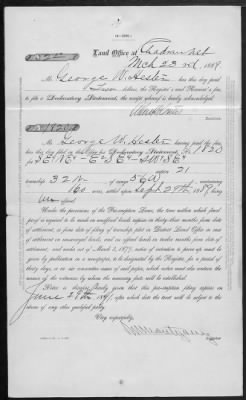 Land Office at Chadron Neb
Mch 23rd, 1889
Mr. George W. Hester has this day paid
Two dollars, the Register's and Receiver's fees,
to file a Declaratory Statement, the receipt whereof is hereby acknowledged.
Receiver.
Mr. George W. Hester having paid the fees,
has this day filed in this Office his Declaratory Statement, No. 1830
for
section 21
township 32 N of range 56 W containing
160 acres, settled upon Sept 29th, 1889, being
un offered.
Under the provisions of the Pre-emption Laws, the time within which final
proof is required to be made on unoffered lands expires in thirty-three months from date
of settlement, or from date of filing of township plat in District Land Office in case
of settlement on unsurveyed lands, and on offered lands in twelve months from date of
settlement, and under act of March 3, 1877, notice of intention to prove up must be
given by publication in a newspaper, to be designated by the Register, for a period of
thirty days, or in six consecutive issues of said paper, which notice must also contain the
names of the witnesses by whom the necessary proof will be established.
Notice is therefore hereby given that this pre-emption filing expires on
June 29th, 1891, after which date the tract will be subject to the
claim of any other qualified party.
Very respectfully,
Register.